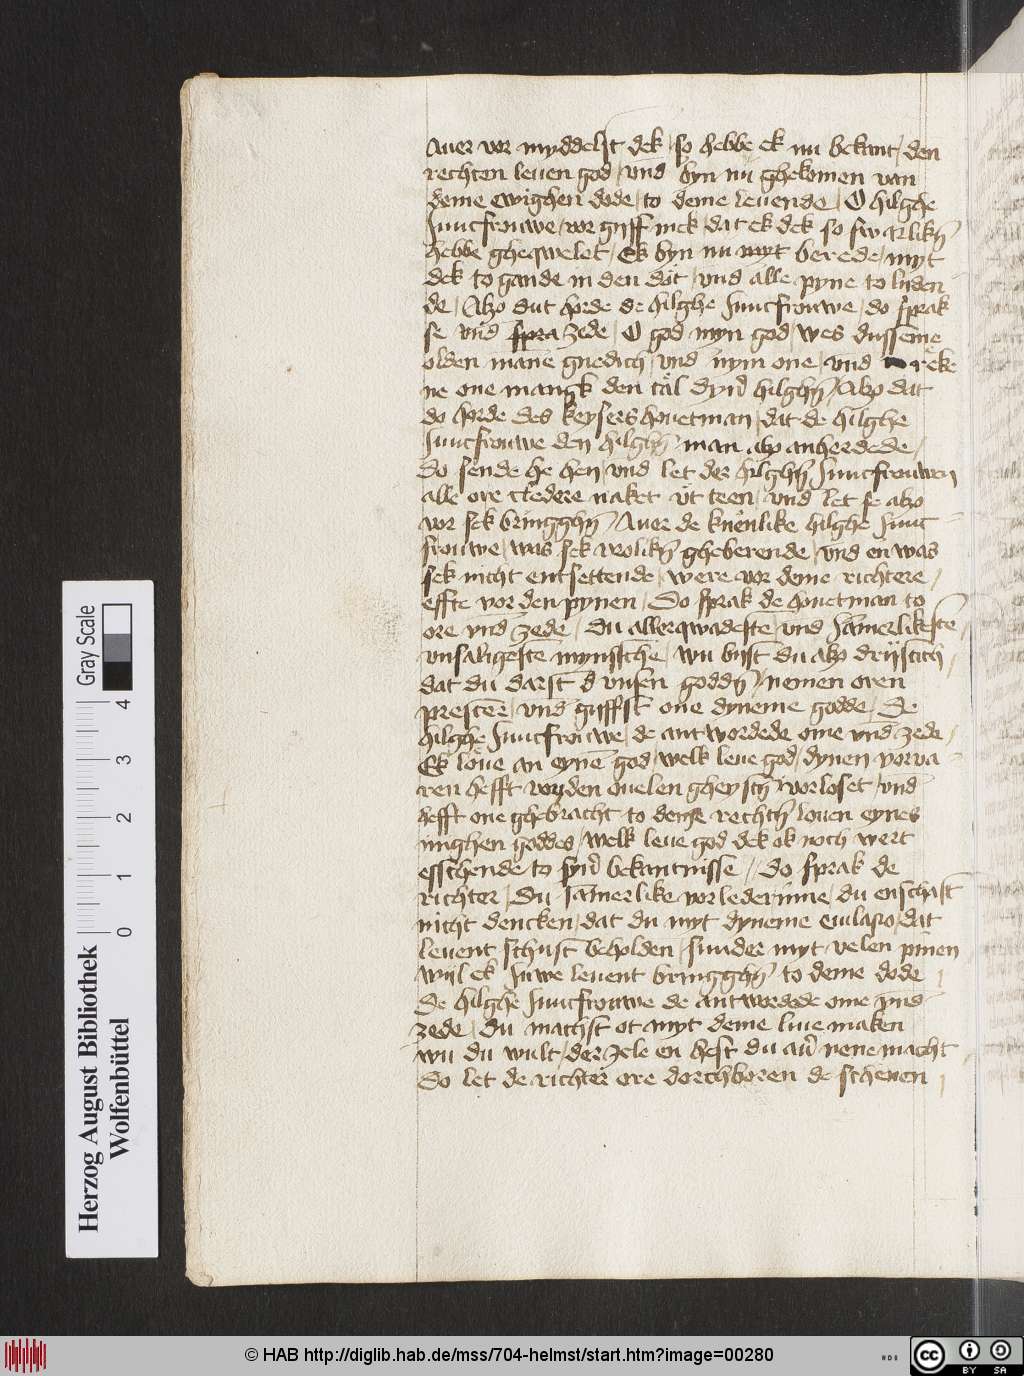 Auer vor myddelst dek / so hebbe ek nu bekant / den
rechten leuen god / vnd byn nu ghekomen van
deme ewighen dode / to deme leuende / O hilghe
Juncfrouwe / vor gyff mek / dat ek dek so swarlikn̄
hebbe gheqwelet / Ek byn nu myt berede / myt
dek to gande in den dot / vnd alle pyne to lyden
de / Alzo dut horde de hilghe Juncfrouwe / do sprak
se vnd spra zede / O god myn god / wes dusseme
olden manē gnedich / vnd nym one / vnd reke
ne one mangk den tal dyn̄ hilghn̄ / Alzo dat
do horde des keysers houetman / dat de hilghe
Juncfrouwe den hilghn̄ man alzo anherdede /
Do sende he hen / vnd let der hilghn̄ Juncfrouwen
alle ore cledere naket vt teen / vnd let se alzo
vor sek bringghn̄ / Auer de kuenlike hilghe Junc
frouwe / was sek vrolikn̄ gheberende / vnd en was
sek nicht entsettende / were vor deme richtere /
effte vor den pynen / Do sprak de houetman to
ore vnd zede / Du allerqwadeste vnd Jāmerlikeste
vnsaligeste mynssche / wu byst du alzo drystich /
dat du darst d vnsen goddn̄ / nemen oren
prester / vnd gyffst one dyneme godde / De
hilghe Juncfrouwe / de antwordede ome vnd zede /
Ek loue an eynē god / welk leue god / dynen vorva
ren hefft van den ouelen gheystn̄ vorloset / vnd
hefft one ghebracht to deme rechtn̄ louen eynes
ninghen goddes / welk leue god dek ok noch wert
esschende to syn̄ bekantnisse // Do sprak de
richter / Du Jāmerlike vorlederinne / du enschast
nicht dencken / dat du myt dyneme
leuent schust beholden / sunder myt velen pinen
wyl ek Juwe leuent bringghn̄ to deme dode /
De hilghe Juncfrouwe de antwordede ome vnd
zede / Du machst ot myt deme liue maken
wu du wult / der zele en hest du au̅ nene macht
Do let de richter ore dorchboren de schenen /
Herzog August Bibliothek
Wolfenbüttel
Gray Scale
0 1 2 3 4
© HAB http://diglib.hab.de/mss/704-helmst/start.htm?image=00280
HAB
cc BY SA